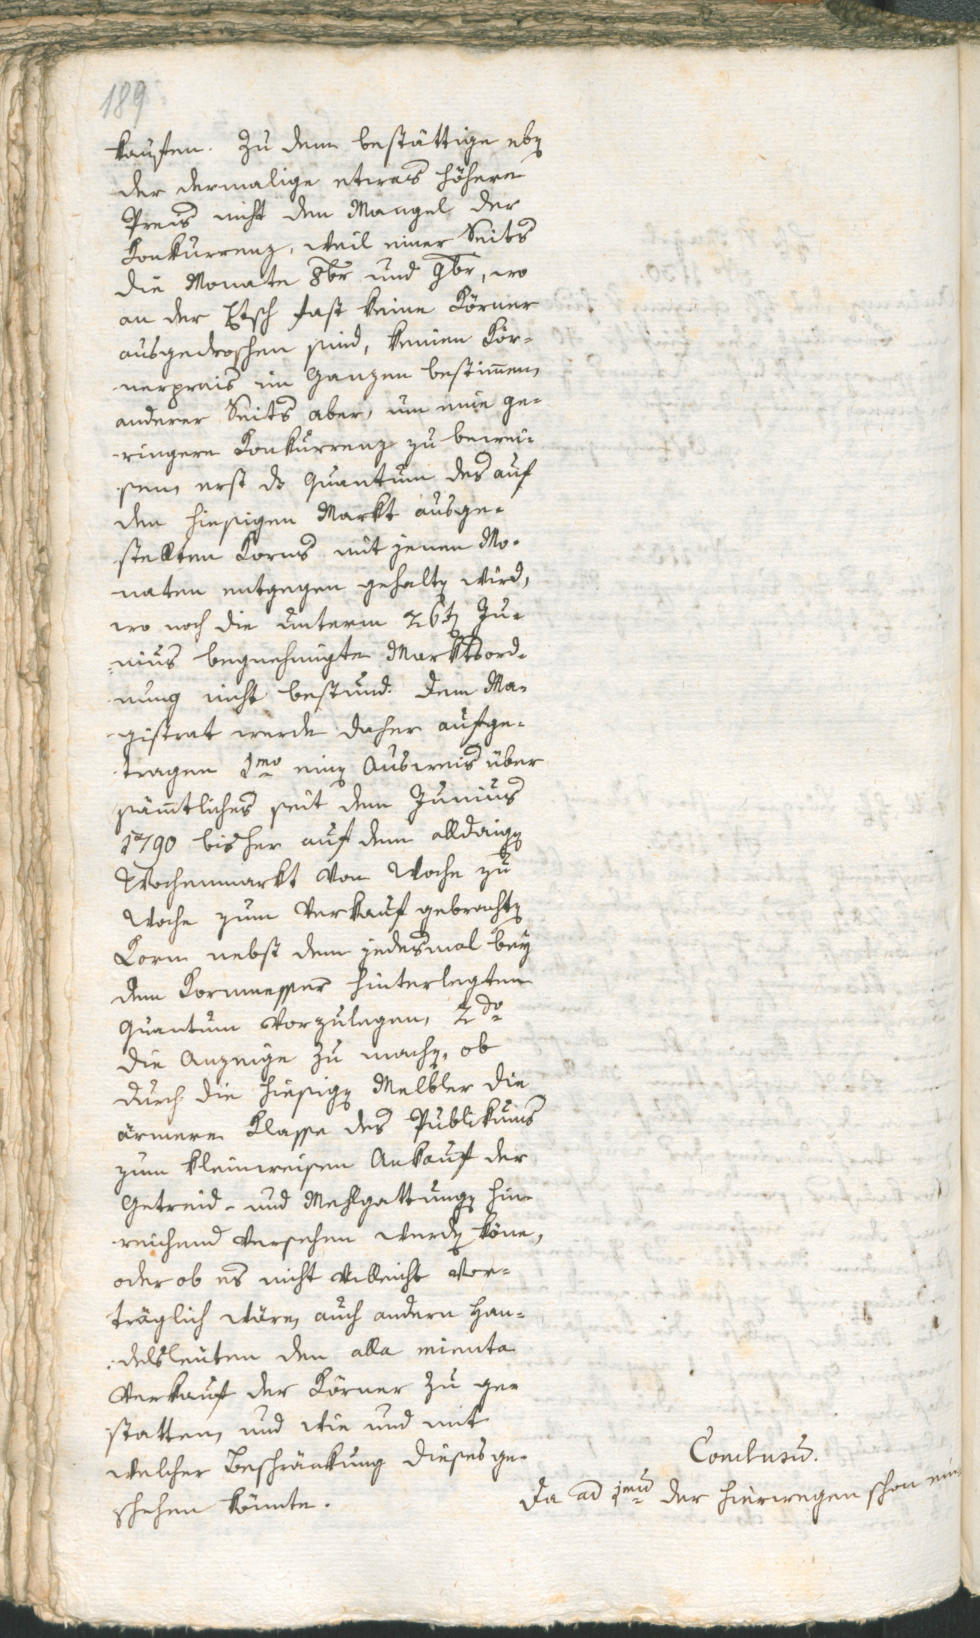 189
kaufen. Zu dem bestättige eben
der dermalige etwas höhere
Preis nicht den Mangel der
Konkurrenz, weil einer Seits
die Monate 8br und 9br, wo
an der Etsch fast keine Körner
ausgedroschen sind, keinen Kör-
nerpreis im Ganzen bestim̄en,
anderer Seits aber, um eine ge-
ringere Konkurrenz zu bewei-
sen, erst ds Quantum des auf
den hiesigen Markt ausge-
stellten Korns mit jenen Mo-
naten entgegen gehalten wird,
wo noch die unterm 26ten Ju-
nius begnehmigte Marktsord-
nung nicht bestund. Dem Ma-
gistrat werde daher aufge-
tragen 1mo einen Ausweis über
säm̄tliches seit dem Junius
1790 bisher auf dem alldaigen
Wochenmarkt von Woche zu
Woche zum Verkauf gebrachten
Korn nebst dem jedesmal bey
dem Kornmesser hinterlegten
Quantum vorzulegen, 2do
die Anzeige zu machen, ob
durch die hiesigen Melbler die
ärmere Klasse des Publikums
zum kleinweisen Ankauf der
Getreid- und Mehlgattungen hin-
reichend versehen werden köne,
oder ob es nicht villeicht vor-
träglich wäre, auch andern Han-
delsleuten den alla minuta
Verkauf der Körner zu ge-
statten, und wie und mit
welcher Beschränkung dieses ge-
schehen könnte.
Conclusum.
Da ad 1mum der hierwegen schon ein-